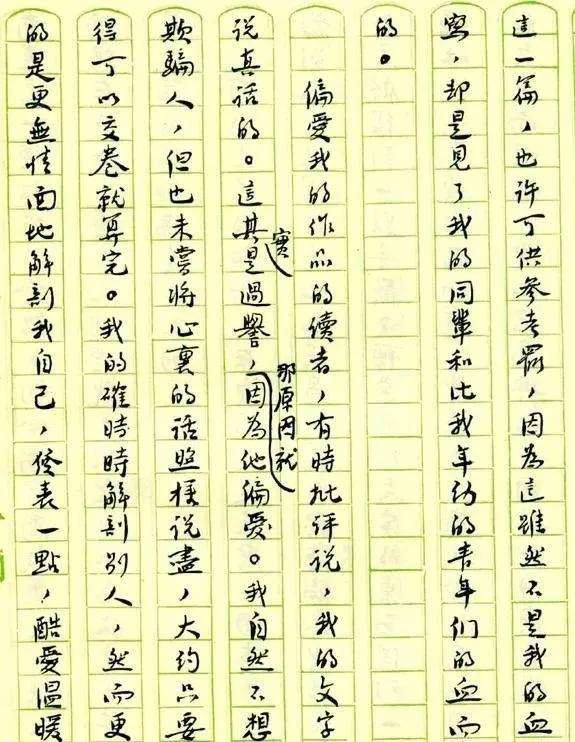 這一篇，也许可供參考罷，因為這雖然不是我的血
寫，却是見了我的同輩和比我年幼的青年们的血而
的。
偏愛我的作品的讀者，有時批评说，我的文字
说真话的。這其實是過譽，那原因就因為他偏愛。我自然不想
欺騙人，但也未嘗将心裏的话照樣说盡，大约只要
得可以交卷就算完。我的確時時解剖别人，然而更
的是更無情面地解剖我自己，發表一點，酷愛温暖